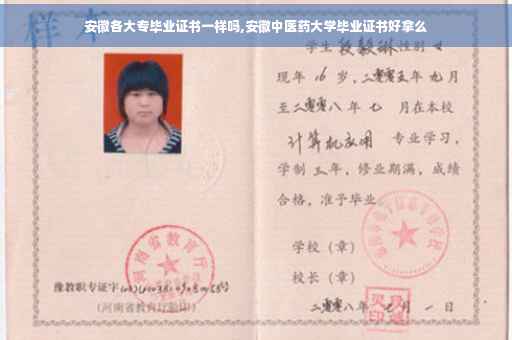 安徽各大专毕业证书一样吗,安徽中医药大学毕业证书好拿么
样本
学生 段毅琳 性别 女
现年 16 岁,二零零五年 九月
至二零零八年 七 月在本校
计算机应用 专业学习,
学制 三 年,修业期满,成绩
合格,准予毕业
学校(章)
校长(章)
二零零八年 月 一 日
豫教职专证字
(河南省教育厅验印)
河南省教育厅